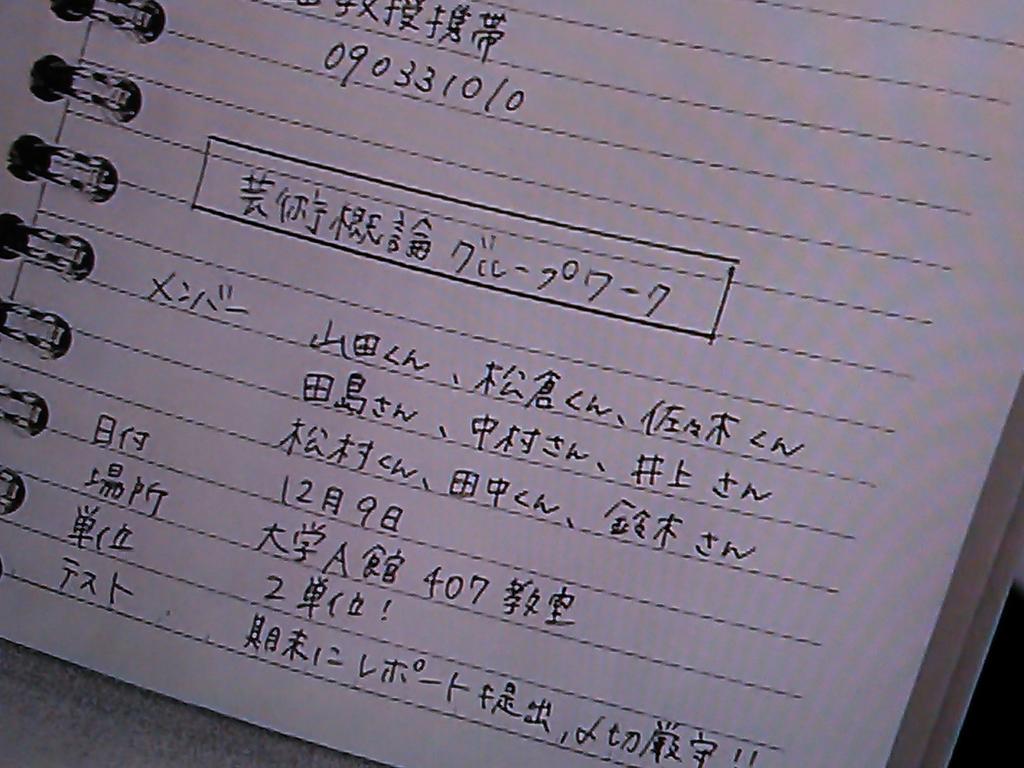 教授携帯
090331010
芸術概論 グループワーク
メンバー 山田くん、松倉くん、佐々木くん
田島さん、中村さん、井上さん
松村くん、田中くん、鈴木さん
日付 12月9日
場所 大学A館 407教室
単位 2単位!
テスト 期末にレポート提出,〆切厳守!!